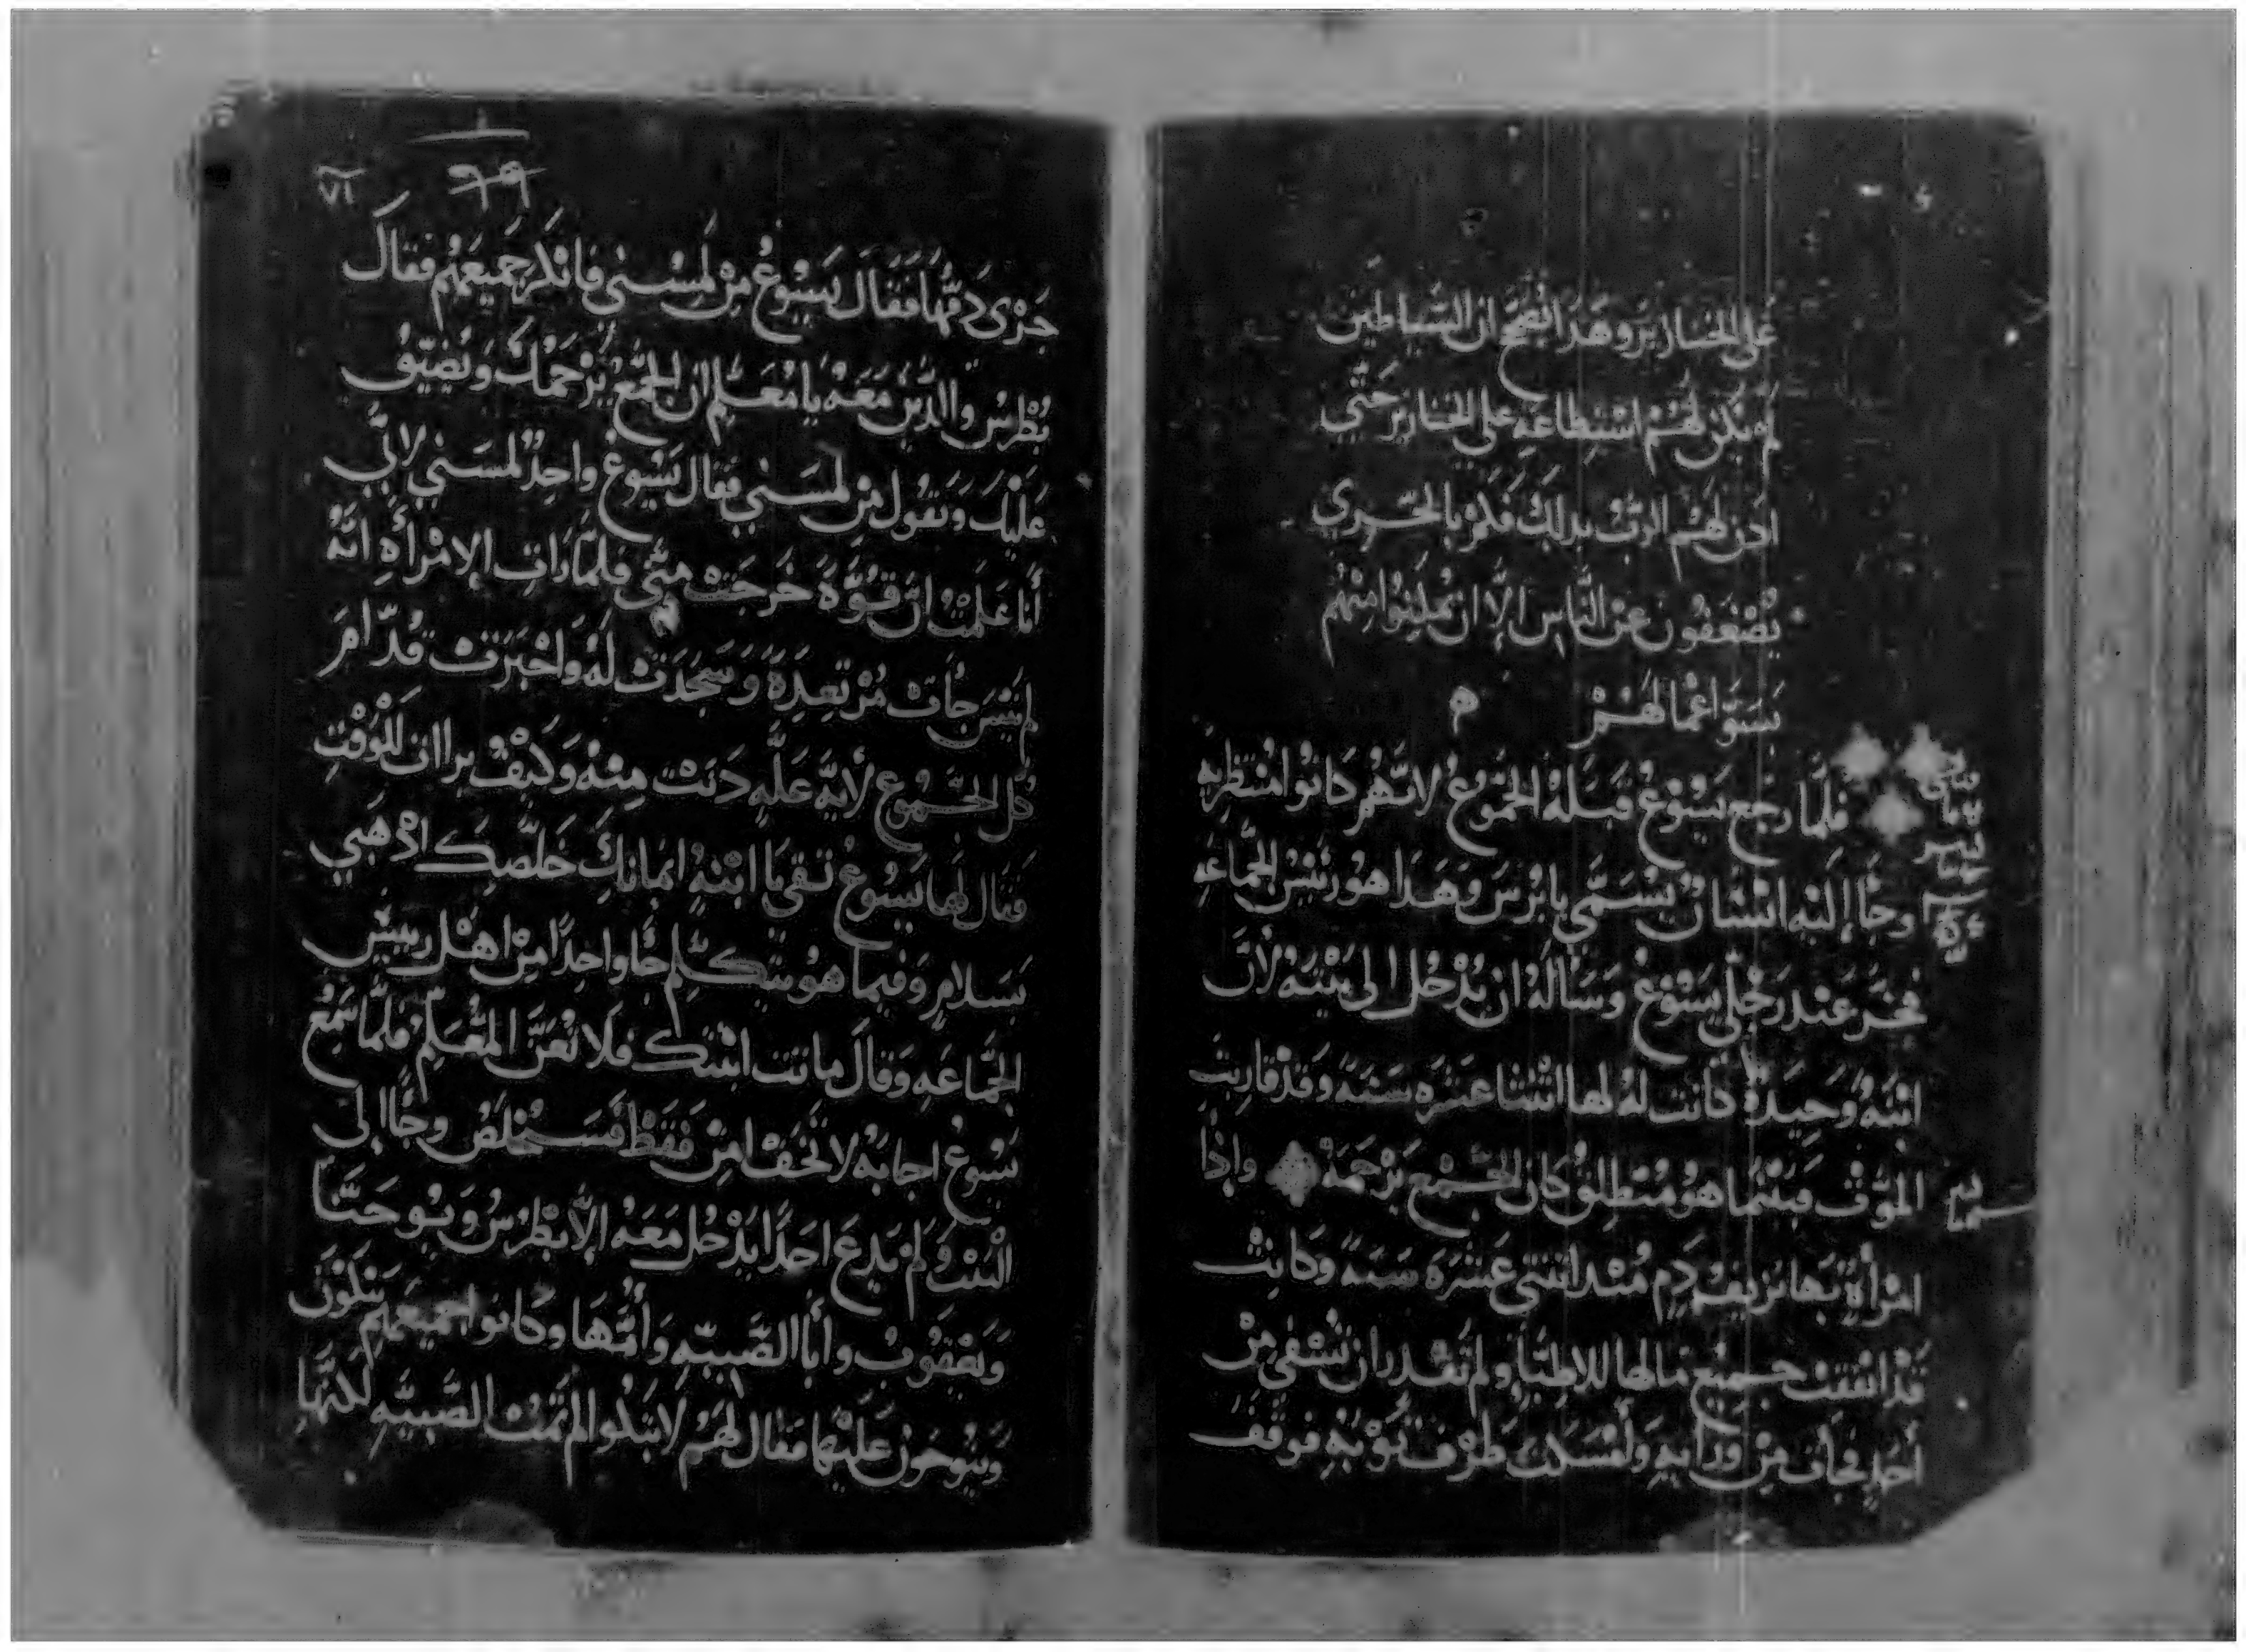 على الخنازير وهذا اتضح ان الشياطين
لم يكن لهم استطاعه على الخنازير حتى
اذن لهم الرب بدلك فكم بالحري
يضعفون عن الناس الا ان يمكنوا منهم
بسو اعمالهم ه
فلما رجع يسوع قبله الجموع لانهم كانوا منتظريه
وجا إليه انسان يسمى يايرس وهدا هو رئيس الجماعه
فخر عند رجلي يسوع وساله ان يدخل الى بيته لان
ابنه وحيدة كانت له لها اثنتا عشره سنه وقد قاربت
الموت فبينما هو منطلق كان الجمع يزحمه وإذا
امرأة بها نزيف دم مند اثنتي عشره سنه وكانت
قد انفقت جميع مالها للاطبا ولم تقدر ان تشفى من
أحد فجأت من ورايه وأمسكت طرف ثوبه فوقف
٦٩ ٧١
جرى دمها فقال يسوع من لمسني فانكر جميعهم فقال
بطرس والدين معه يا معلم ان الجمع يزحمك ويضيق
عليك وتقول من لمسني فقال يسوع واحد لمسني لاني
أنا علمت ان قوة خرجت مني فلما رات الإمرأه انه
لم ينس جأت مرتعدة وسجدت له واخبرت قدام
كل الجموع لأية عله دنت منه وكيف براات للوقت
فقال لها يسوع ثقي يا ابنه ايمانك خلصك اذهبي
بسلام وفيما هو يتكلم جا واحدا من اهل رييس
الجماعه وقال ماتت ابنتك فلا تعن المعلم فلما سمع
يسوع اجابه لا تخف امن فقط فستخلص وجا إلى
البيت ولم يدع احدا يدخل معه إلا بطرس ويوحنا
ويعقوب وأبا الصبيه وأمها وكانوا جميعهم يبكون
وينوحون عليها فقال لهم لا تبكوا لم تمت الصبيه لكنها